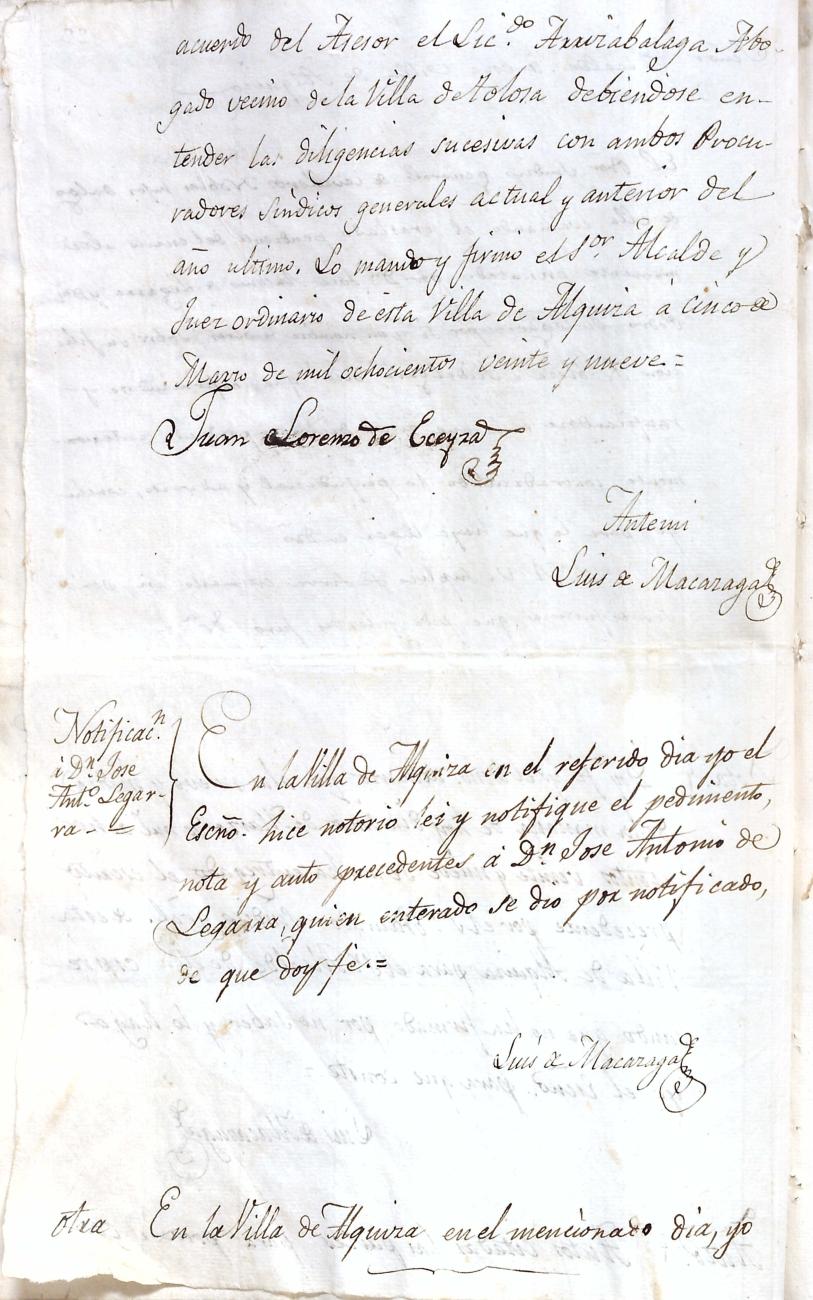 acuerdo del Asesor el Lic.do Arrizabalaga Abo-
gado vecino de la Villa de tolosa debiendose en-
tender las diligencias sucesivas con ambos Procu-
radores Sindicos generales actual y anterior del
año ultimo. Lo mando y firmo el S.or Alcalde y
Juez ordinario de esta Villa de Alquiza á Cinco de
Marzo de mil ochocientos veinte y nueve =
Juan Lorenzo de Eceyza
Antemi
Luis de Macazaga
Notificac.n
á D.n Jose
Ant.o Legar-
ra -
En la Villa de Alquiza en el referido dia yo el
Escño. hice notorio lei y notifique el pedimento,
nota y auto precedentes á D.n Jose Antonio de
Legarra, quien enterado se dio por notificado,
de que doy fe. =
Luis de Macazaga
otra En la Villa de Alquiza en el mencionado dia, yo